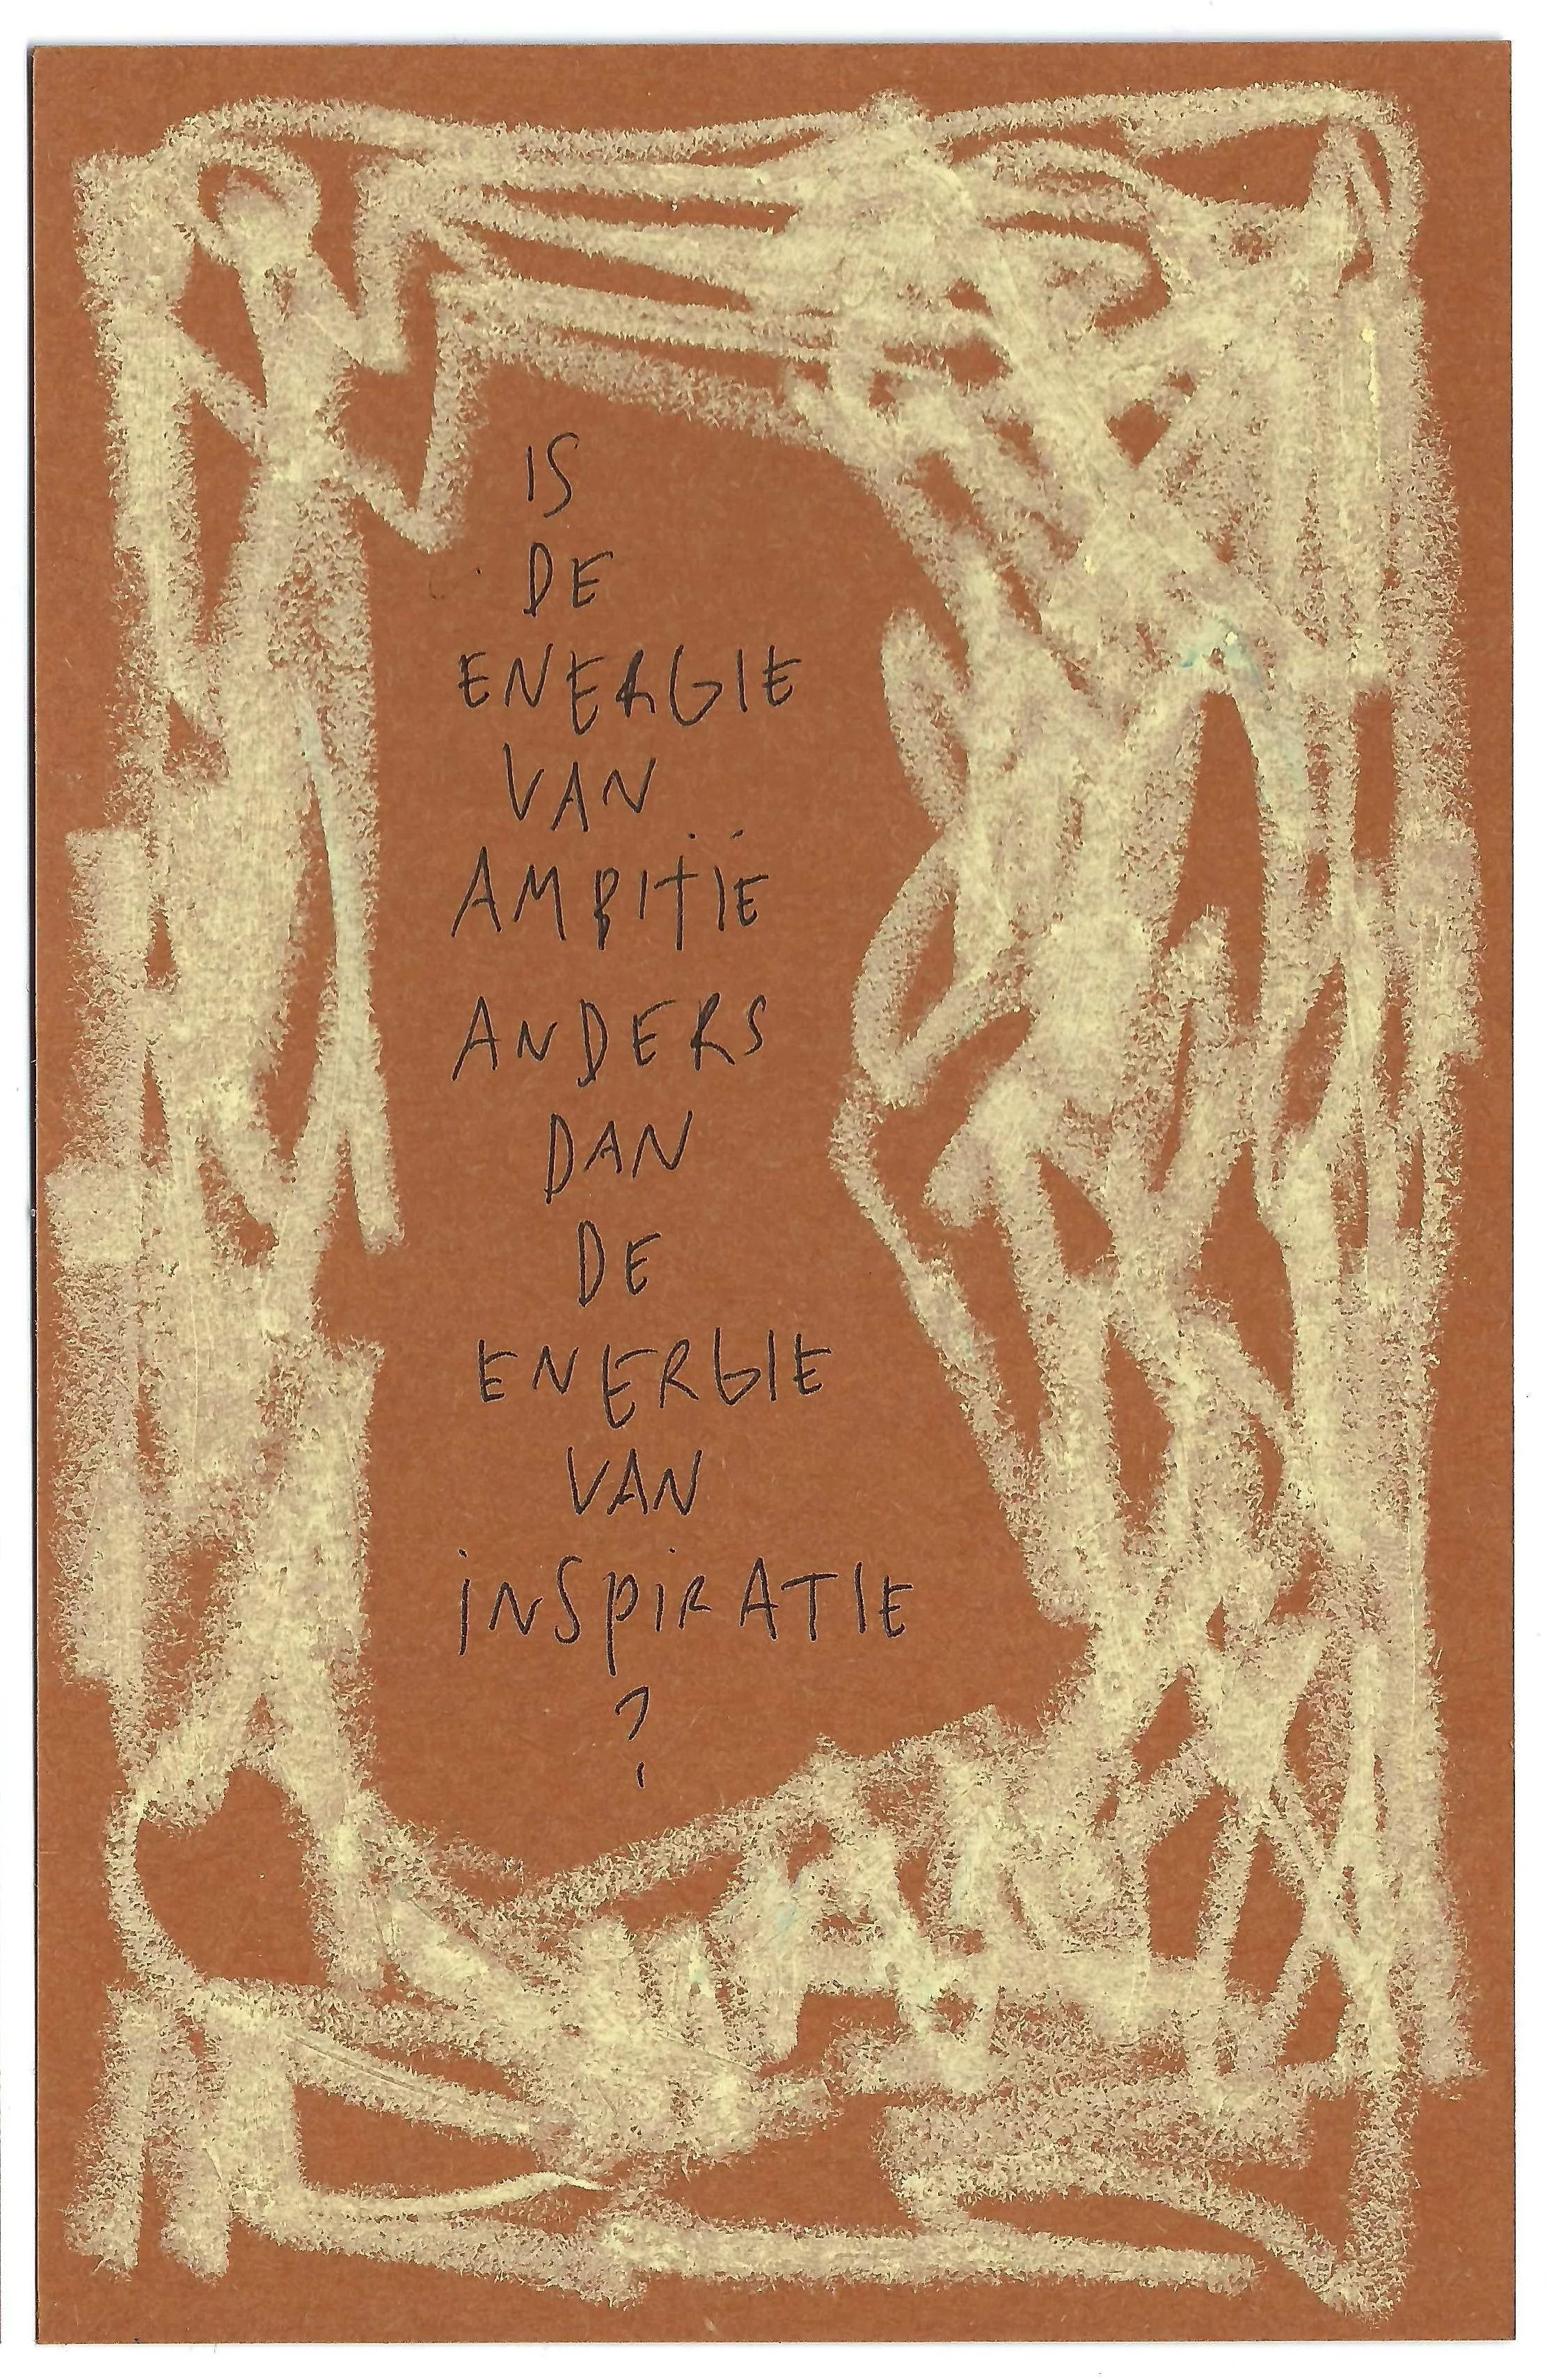 IS
DE
ENERGIE
VAN
AMBITIË
ANDERS
DAN
DE
ENERGIE
VAN
iNSpiRATIE
?